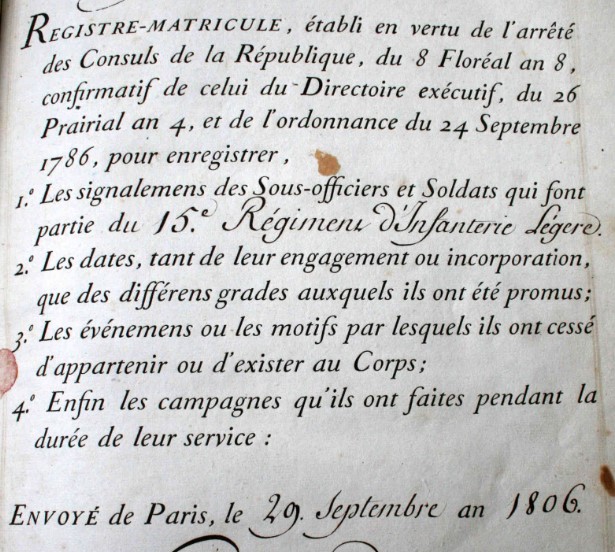 REGISTRE-MATRICULE, établi en vertu de l'arrêté
des Consuls de la République, du 8 Floréal an 8,
confirmatif de celui du Directoire exécutif, du 26
Prairial an 4, et de l'ordonnance du 24 Septembre
1786, pour enregistrer,
1.º Les signalemens des Sous-officiers et Soldats qui font
partie du 15.e Régiment d'Infanterie Légere.
2.º Les dates, tant de leur engagement ou incorporation,
que des différens grades auxquels ils ont été promus;
3.º Les événemens ou les motifs par lesquels ils ont cessé
d'appartenir ou d'exister au Corps;
4.º Enfin les campagnes qu'ils ont faites pendant la
durée de leur service :
ENVOYÉ de Paris, le 29. Septembre an 1806.